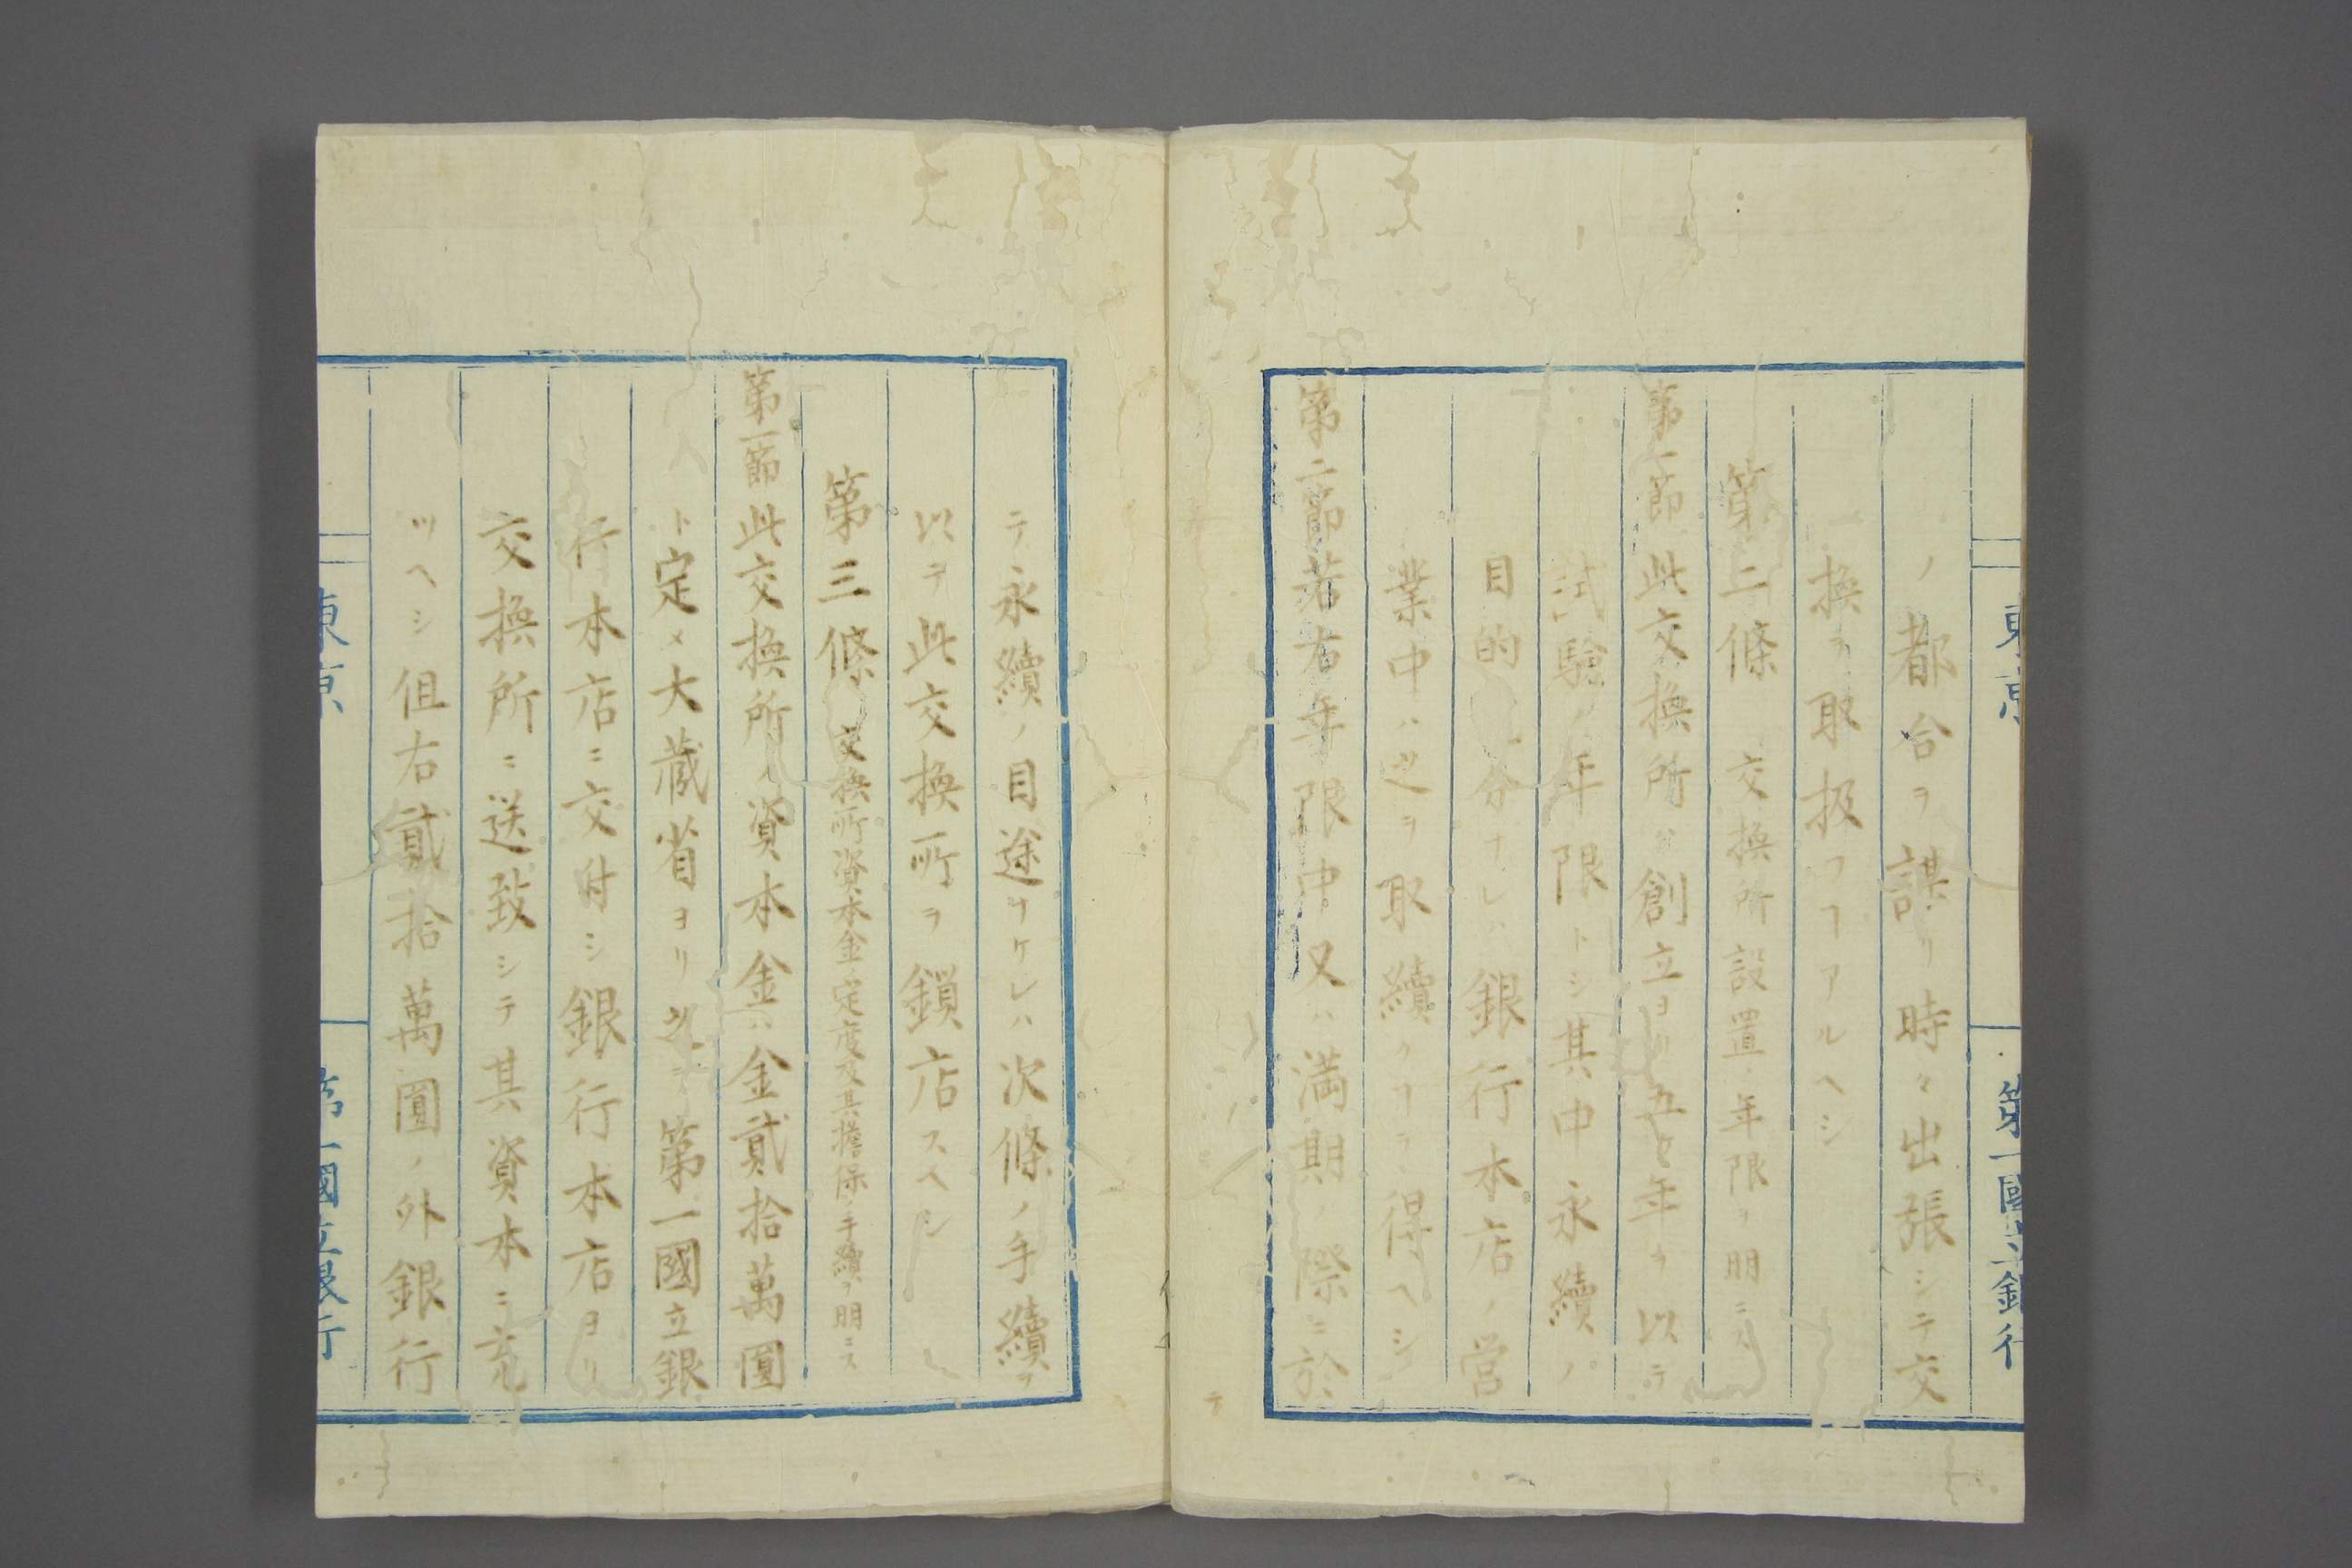 東京
第一國立銀行
ノ都合ヲ謀リ時々出張シテ交
換ヲ取扱フヿアルヘシ
第二條 交換所設置ノ年限ヲ明ニス
第一節此交換所ハ創立ヨリ五ヶ年ヲ以テ
試驗ノ年限トシ其中永續ノ
目的十分ナレハ銀行本店ノ営
業中ハ之ヲ取續クヿヲ得ヘシ
第二節若右年限中又ハ満期ノ際ニ於
テ
テ永續ノ目途ナケレハ次條ノ手續ヲ
以テ此交換所ヲ鎖店スヘシ
第三條 交換所資本金ノ定度及其擔保ノ手續ヲ明ニス
第一節此交換所ノ資本金ハ金貳拾萬圓
ト定メ大藏省ヨリ之ヲ第一國立銀
行本店ニ交付シ銀行本店ヨリ
交換所ニ送致シテ其資本ニ充
ツヘシ但右貳拾萬圓ノ外銀行
東京
第一國立銀行